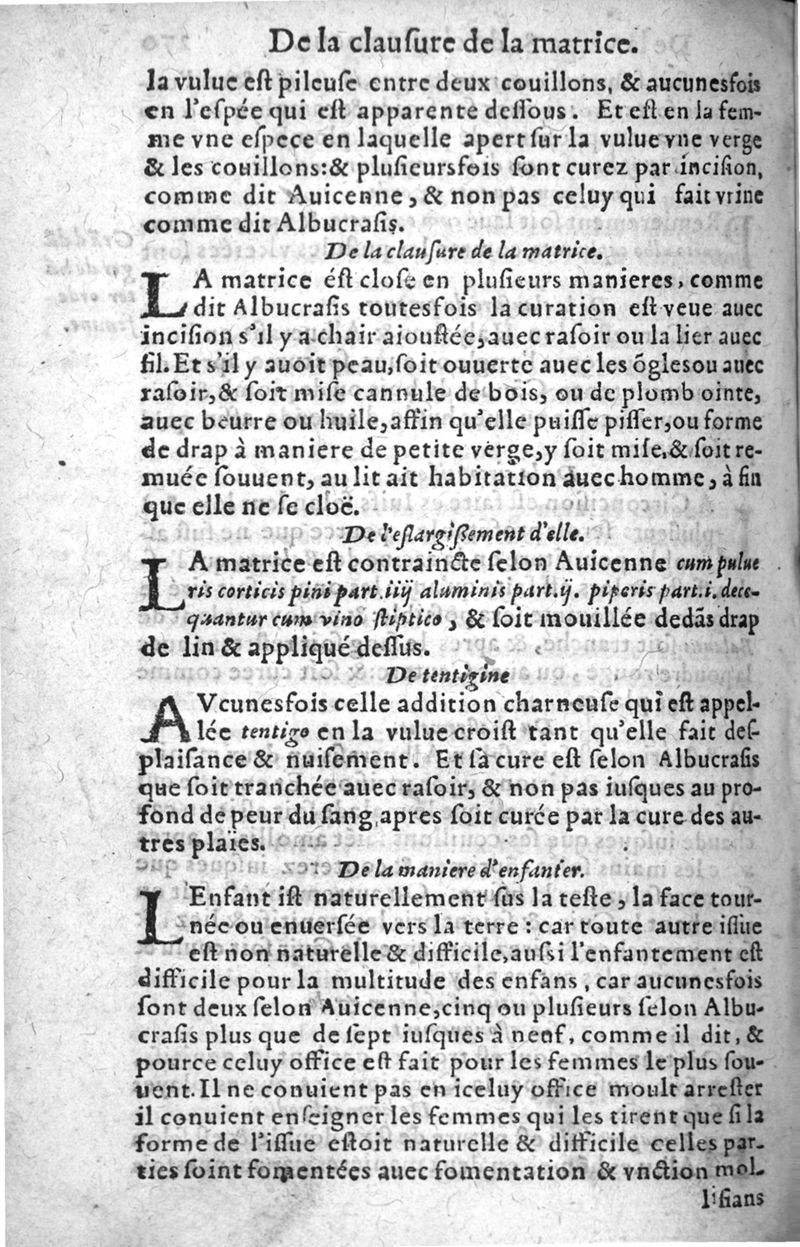 De la clauſure de la matrice.
la vulue eſt pileuſe entre deux couillons, & aucunesfois
en l'eſpée qui eſt apparente deſſous. Et eſt en la fem-
me vne eſpece en laquelle apert ſur la vulue vne verge
& les couillons:& pluſieursfois ſont curez par inciſion,
comme dit Auicenne, & non pas celuy qui fait vrine
comme dit Albucraſis.
De la clauſure de la matrice.
LA matrice éſt cloſe en pluſieurs manieres, comme
dit Albucraſis toutesfois la curation eſt veue auec
inciſion s'il y a chair aiouſtée, auec raſoir ou la lier auec
fil. Et s'il y auoit peau, ſoit ouuerte auec les õgles ou auec
raſoir, & ſoit miſe cannule de bois, ou de plomb ointe,
auec beurre ou huile, affin qu'elle puiſſe piſſer, ou forme
de drap à maniere de petite verge, y ſoit miſe, & ſoit re-
muée ſouuent, au lit ait habitation auec homme, à fin
que elle ne ſe cloë.
De l'eſlargiſſement d'elle.
LA matrice eſt contraincte ſelon Auicenne cum pulue
ris corticis pini part. iiij aluminis part. ij. piperis part. i. deco-
quantur cum vino ſtiptico, & ſoit mouillée dedãs drap
de lin & appliqué deſſus.
De tentigine
AVcunesfois celle addition charneuſe qui eſt appel-
lée tentigo en la vulue croiſt tant qu'elle fait deſ-
plaiſance & nuiſement. Et ſa cure eſt ſelon Albucraſis
que ſoit tranchée auec raſoir, & non pas iuſques au pro-
fond de peur du ſang apres ſoit curée par la cure des au-
tres plaies.
De la maniere d'enfanter.
L'Enfant iſt naturellement ſus la teſte, la face tour-
née ou enuerſée vers la terre : car toute autre iſſue
eſt non naturelle & difficile, auſsi l'enfantement eſt
difficile pour la multitude des enfans, car aucunesfois
ſont deux ſelon Auicenne, cinq ou pluſieurs ſelon Albu-
craſis plus que de ſept iuſques à neof, comme il dit, &
pource celuy office eſt fait pour les femmes le plus ſou-
uent. Il ne conuient pas en iceluy office moult arreſter
il conuient enſeigner les femmes qui les tirent que ſi la
forme de l'iſſue eſtoit naturelle & difficile celles par-
ties ſoint fomentées auec fomentation & vnction mol-
liſians